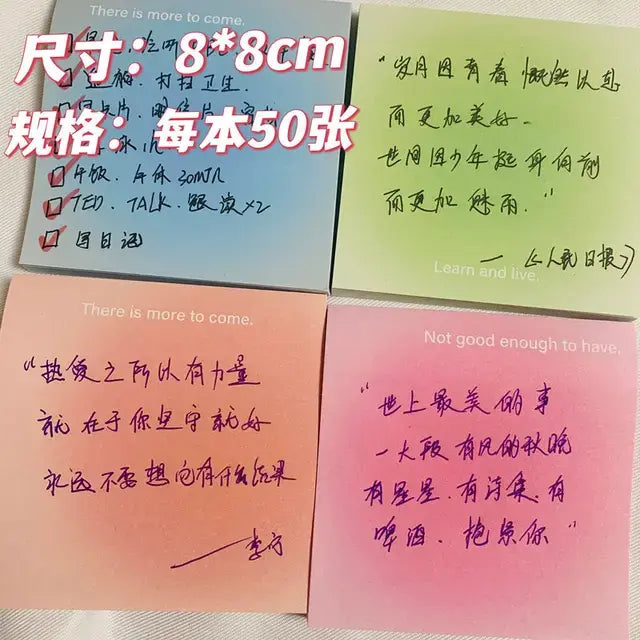 There is more to come.
尺寸：8*8cm
打扫卫生.
规格：每本50张
午饭. 午休30min
TED. TALK. 跟读×2
写日记
"岁月因有着慨然以赴
而更加美好.
世间因少年挺身向前
而更加魅丽."
—《人民日报》
Learn and live.
There is more to come.
"热爱之所以有力量
就在于你坚守就好
永远不要想它有什么结果
——李宁
Not good enough to have.
"世上最美的事
一大段有风的秋晚
有星星.有诗集.有
啤酒.抱紧你"